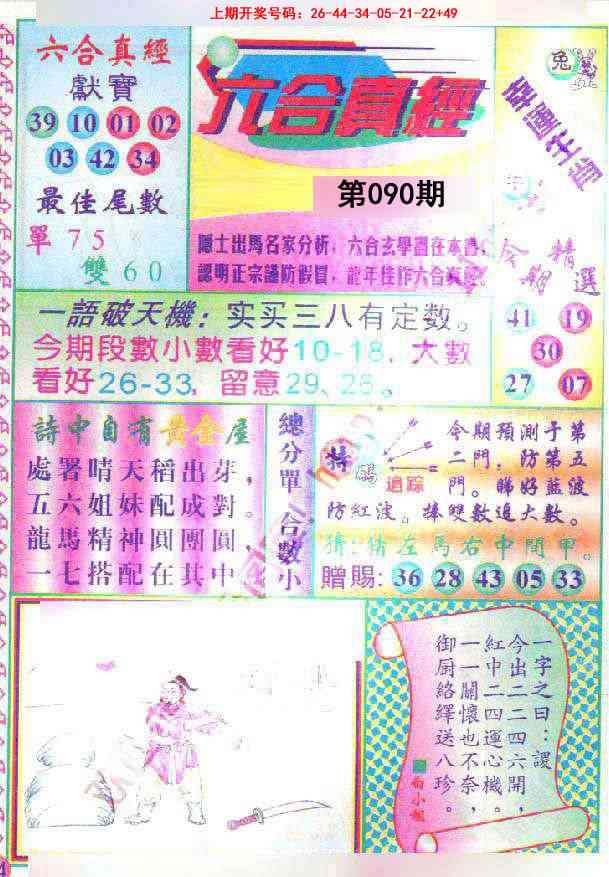 上期开奖号码：26-44-34-05-21-22+49
六合真經
獻寶
39 10 01 02
03 42 34
最佳尾數
單 75
雙 60
六合真經
第090期
隱士出馬名家分析，六合玄學盡在本書，
認明正宗謹防假冒，龍年佳作六合真經。
兔
幸運生肖
牛
今期精選
41 19
30
27 07
一語破天機：实买三八有定数。
今期段數小數看好10-18，大數
看好26-33，留意29、28。
詩中自有黄金屋
處署晴天稻出芽，
五六姐妹配成對。
龍馬精神圓團圓，
一七搭配在其中
總分單
合數小
特碼
追踪
今期預測于第
二門，防第五
門。睇好藍波
防紅波。捧雙數追大數。
猜：估左馬右中間甲。
贈賜：36 28 43 05 33
一字之曰：謖
今出二二四六開，
紅中二四運心機。
一一關懷也不奈，
御厨絡繹送八珍。
白小姐